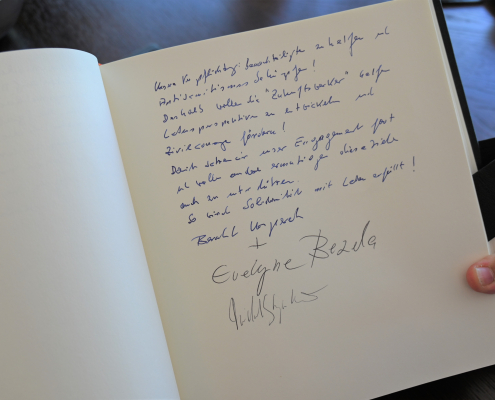 Unsere Verpflichtung: Benachteiligten zu helfen und
Antisemitismus bekämpfen!
Deshalb wollen die "Zukunftswerker" helfen
Lebensperspektiven zu entwickeln und
Zivilcourage fördern!
Damit setzen wir unser Engagement fort
und wollen andere ermutigen diese Ziele
auch zu unterstützen.
So wird Solidarität mit Leben erfüllt!
+
Evelyne Bezela